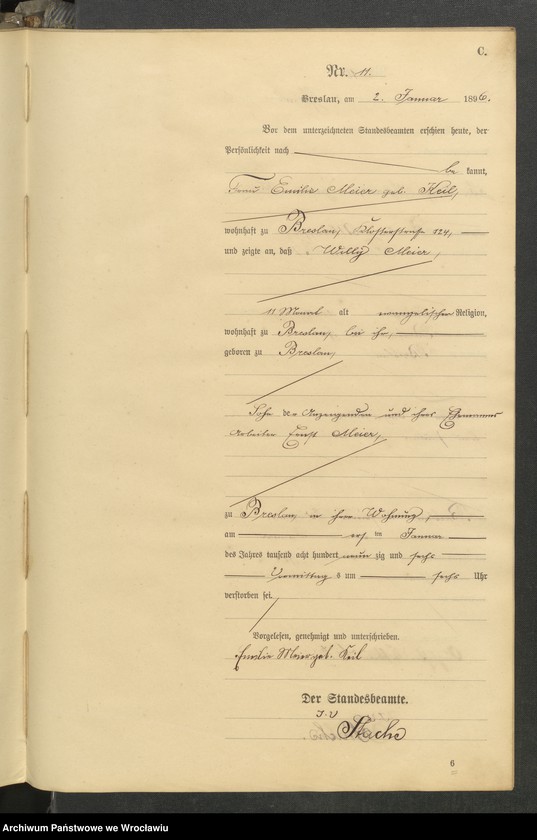 C.
Nr. 11.
Breslau, am 2. Januar 1896.
Vor dem unterzeichneten Standesbeamten erschien heute, der
Persönlichkeit nach
be kannt,
Frau Emilie Meier geb. Keil,
wohnhaft zu Breslau, Klosterstraße 124,
und zeigte an, daß Willy Meier,
11 Monat alt evangelischer Religion,
wohnhaft zu Breslau, bei ihr,
geboren zu Breslau,
Sohn der Anzeigenden und ihres Ehemannes
Arbeiter Ernst Meier,
zu Breslau, in ihrer Wohnung,
am ersten Januar
des Jahres tausend acht hundert neunzig und sechs
Vormittags um sechs Uhr
verstorben sei.
Vorgelesen, genehmigt und unterschrieben.
Emilie Meier geb. Keil
Der Standesbeamte.
I. V
Stache
6
Archiwum Państwowe we Wrocławiu